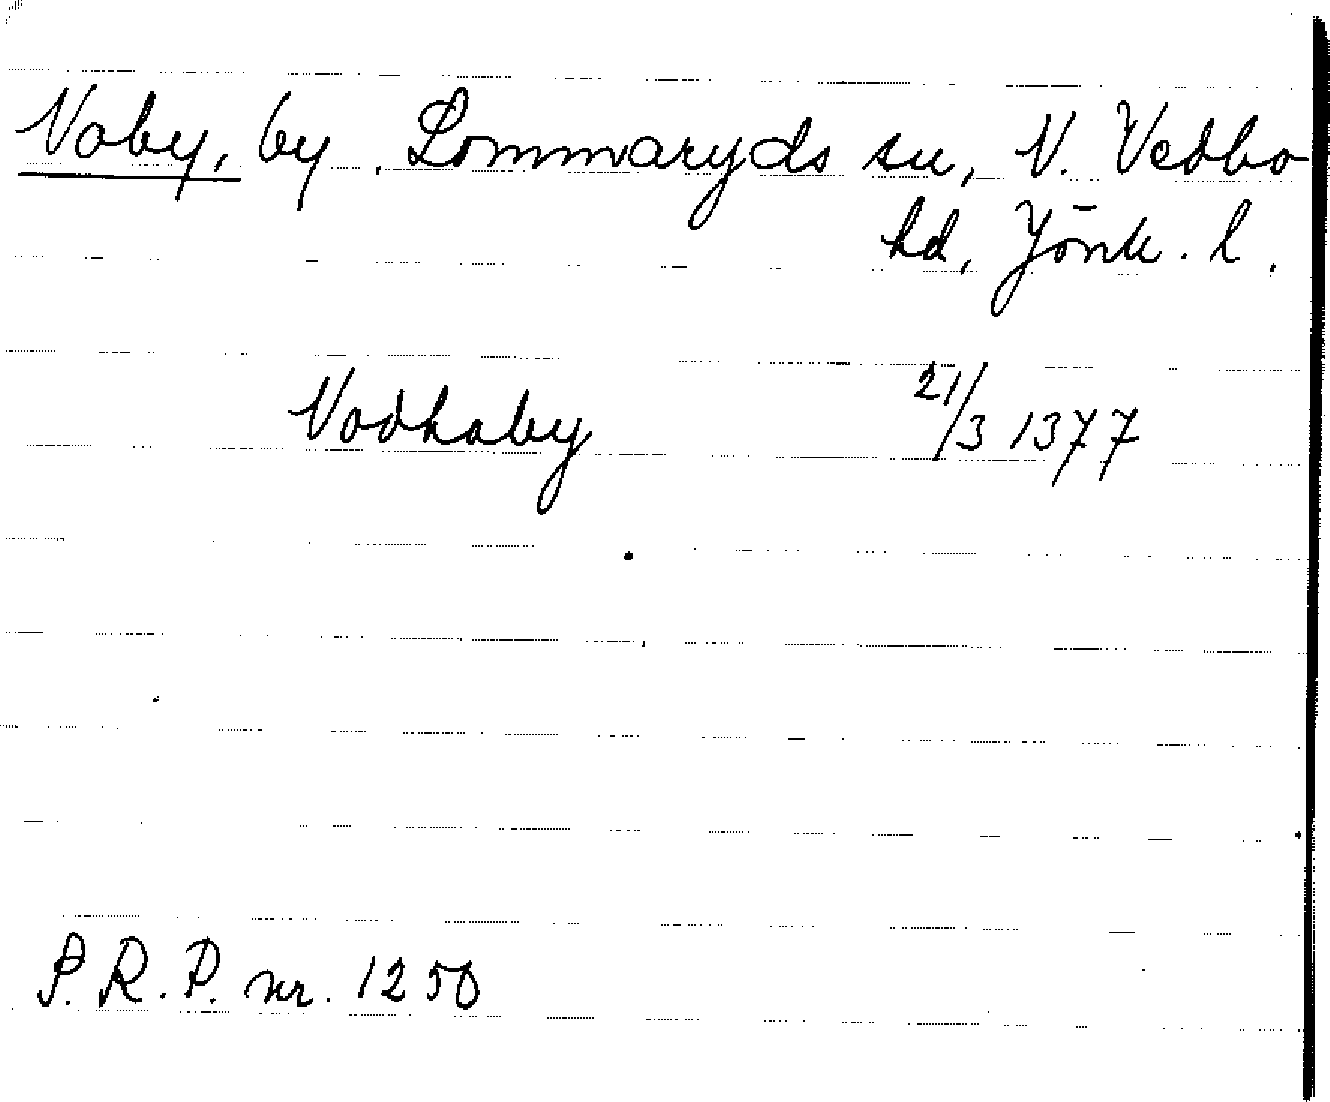 Noby, by, Lommaryds sn, N. Vedbo
hd, Jönk. l.
Nodhaby 21/3 1377
P.R.P. nr. 1250